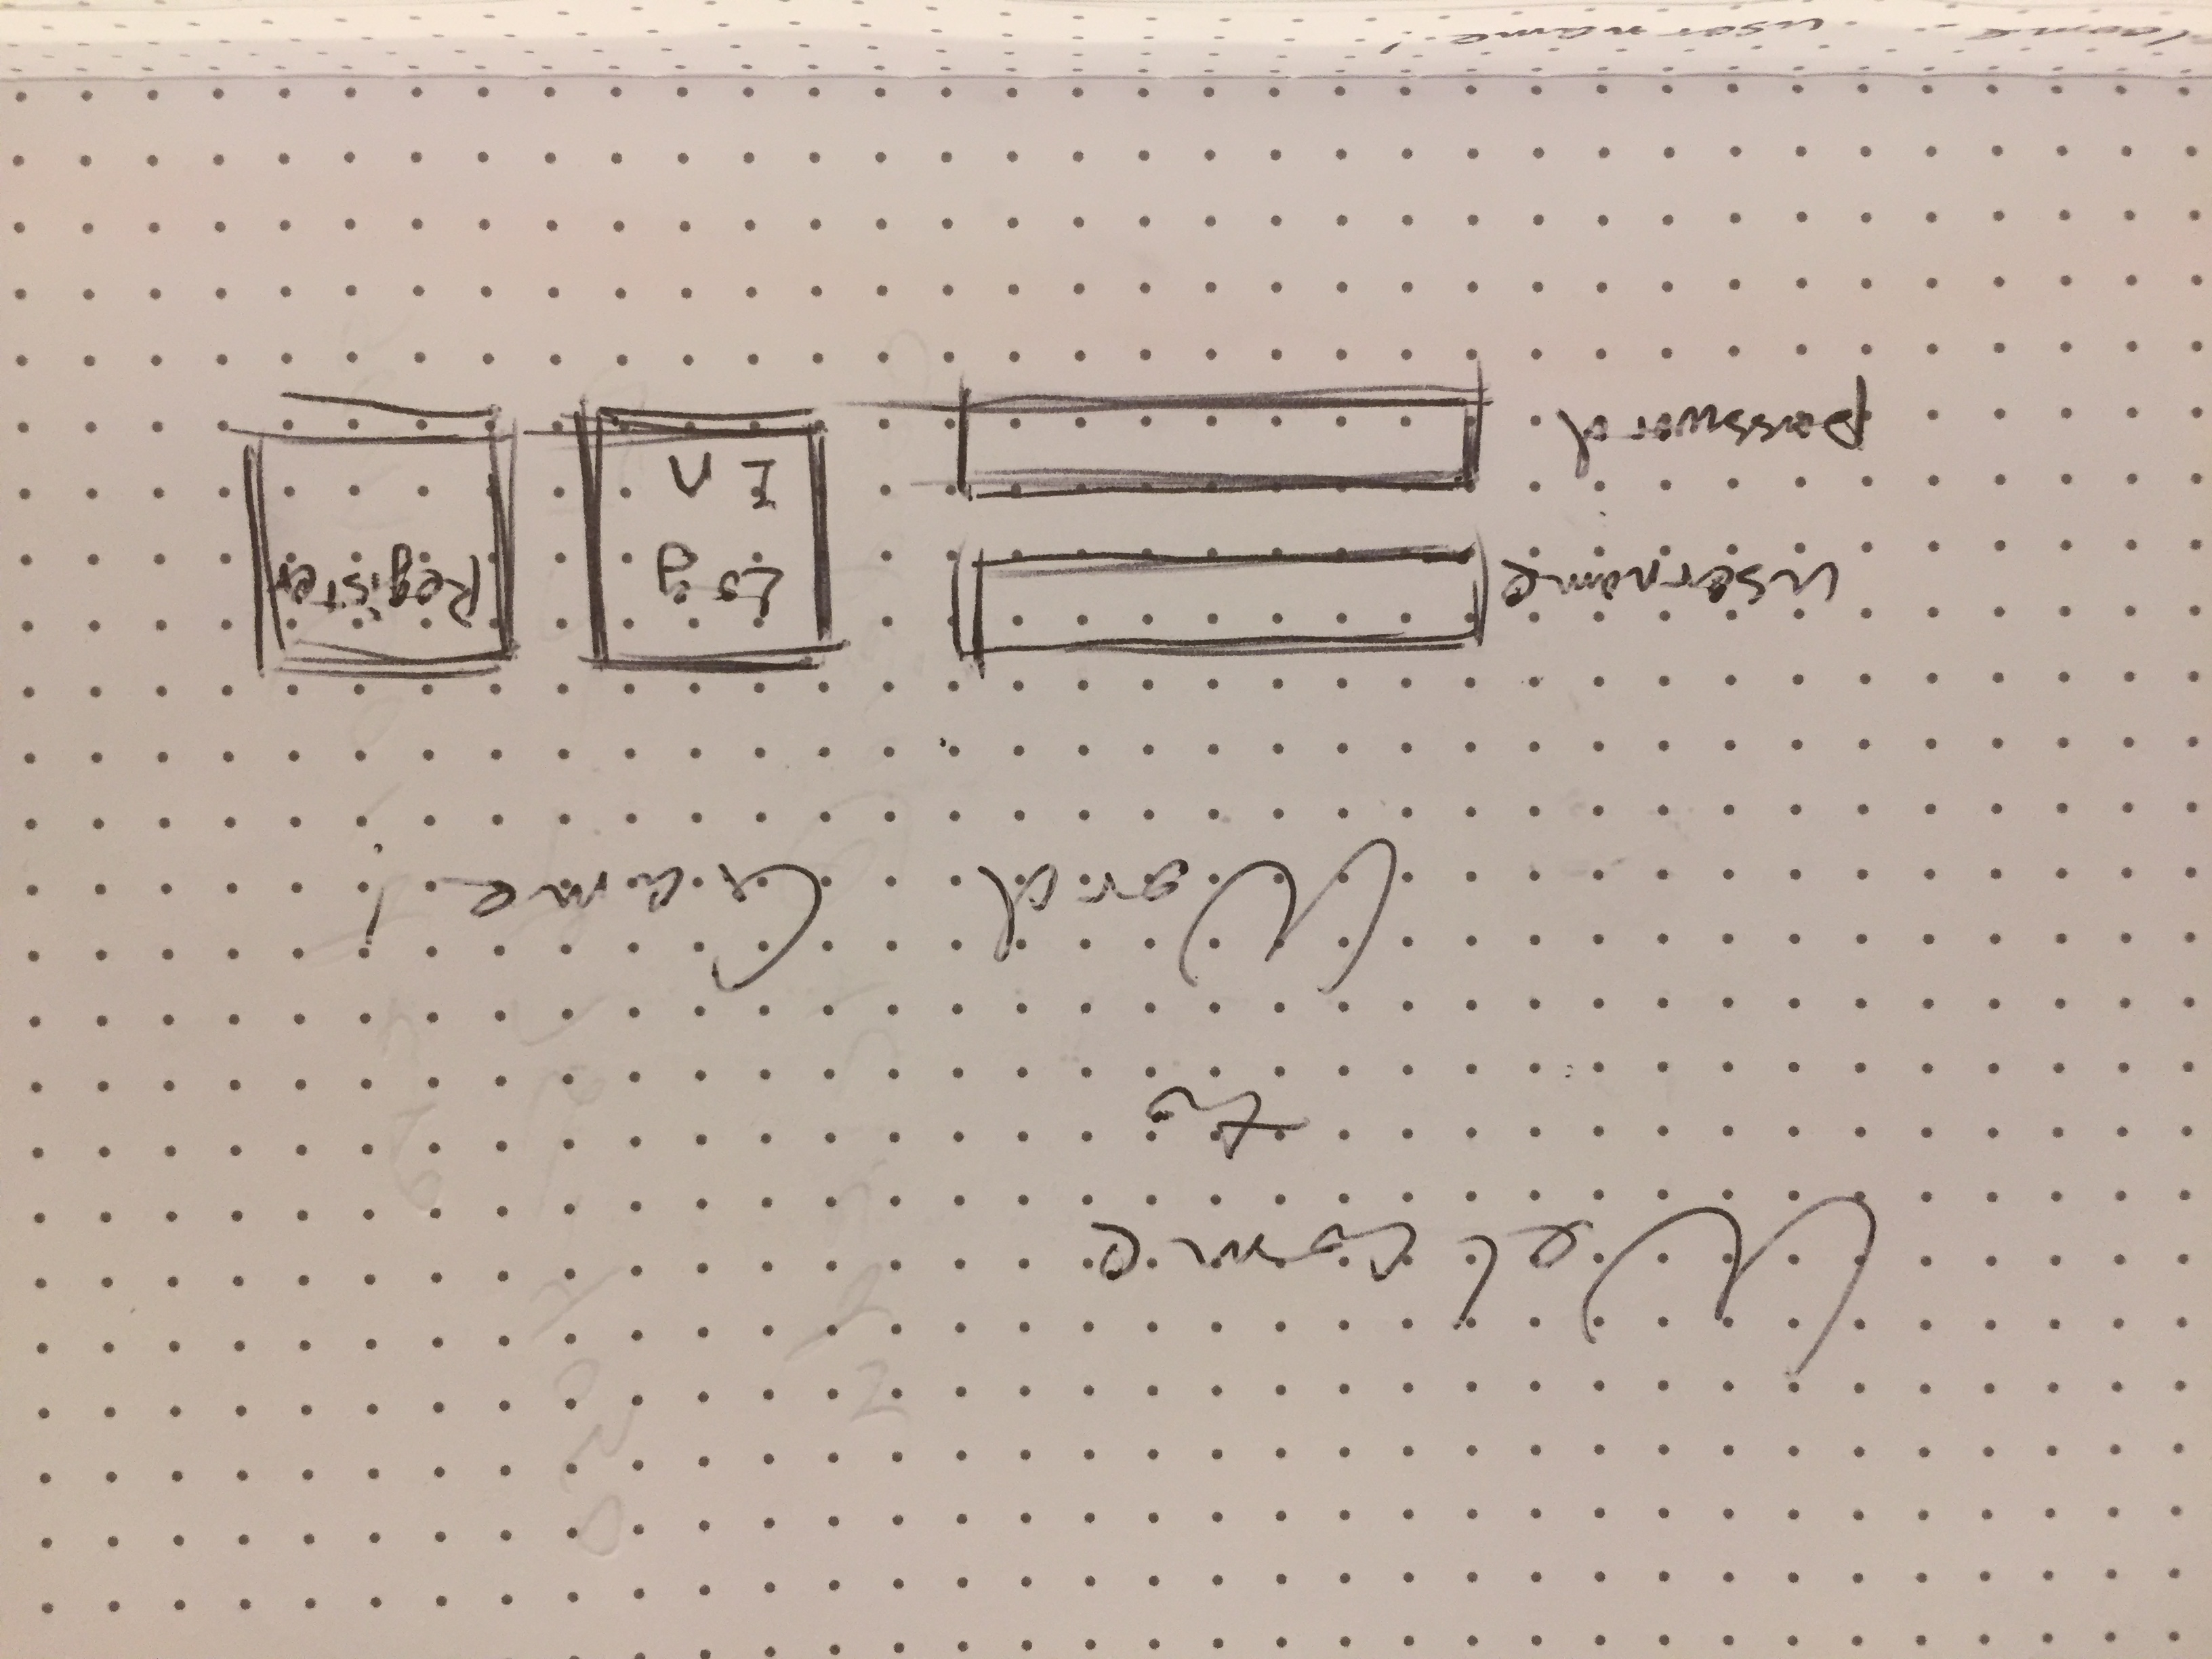 Welcome
to
Word Game!
username
password
Log
In
Register
username!